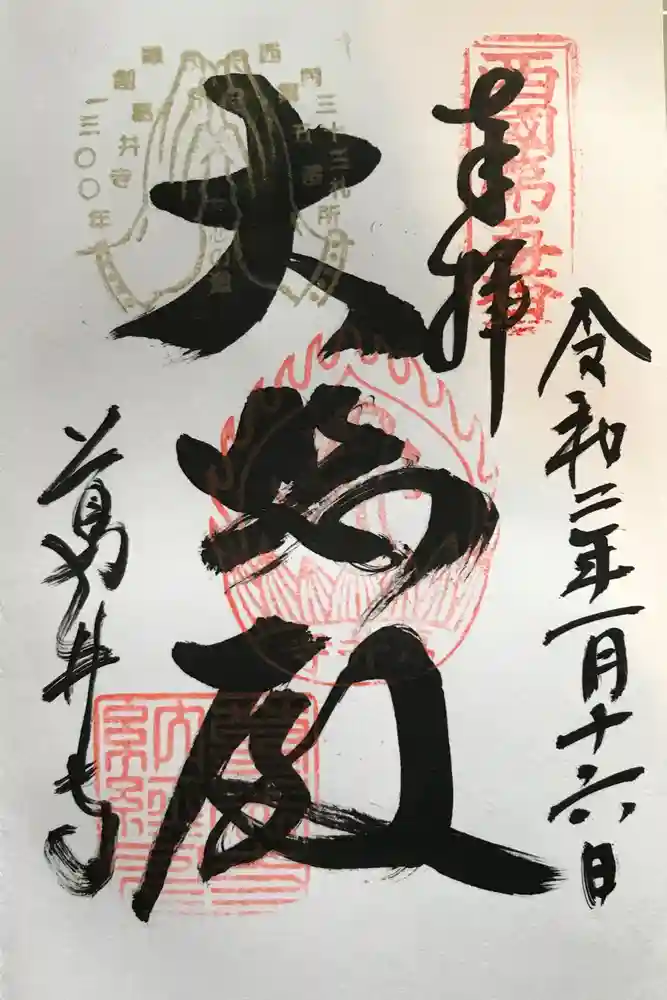 令和二年一月十六日
西国第五番
奉拝
大悲殿
三十三札所
一三〇〇年
葛井寺